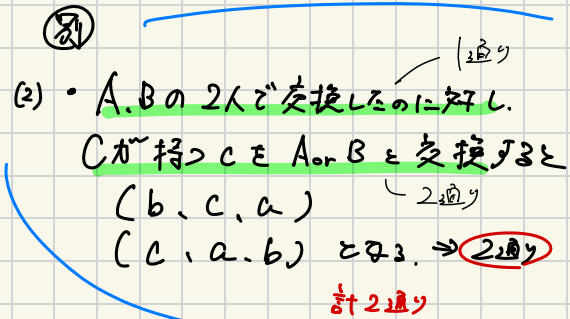 別
1通り
(2)・A、Bの2人で交換したのに対し、
Cが持つcをA or Bと交換すると
2通り
(b、c、a)
(c、a、b) となる。→ 2通り
計2通り